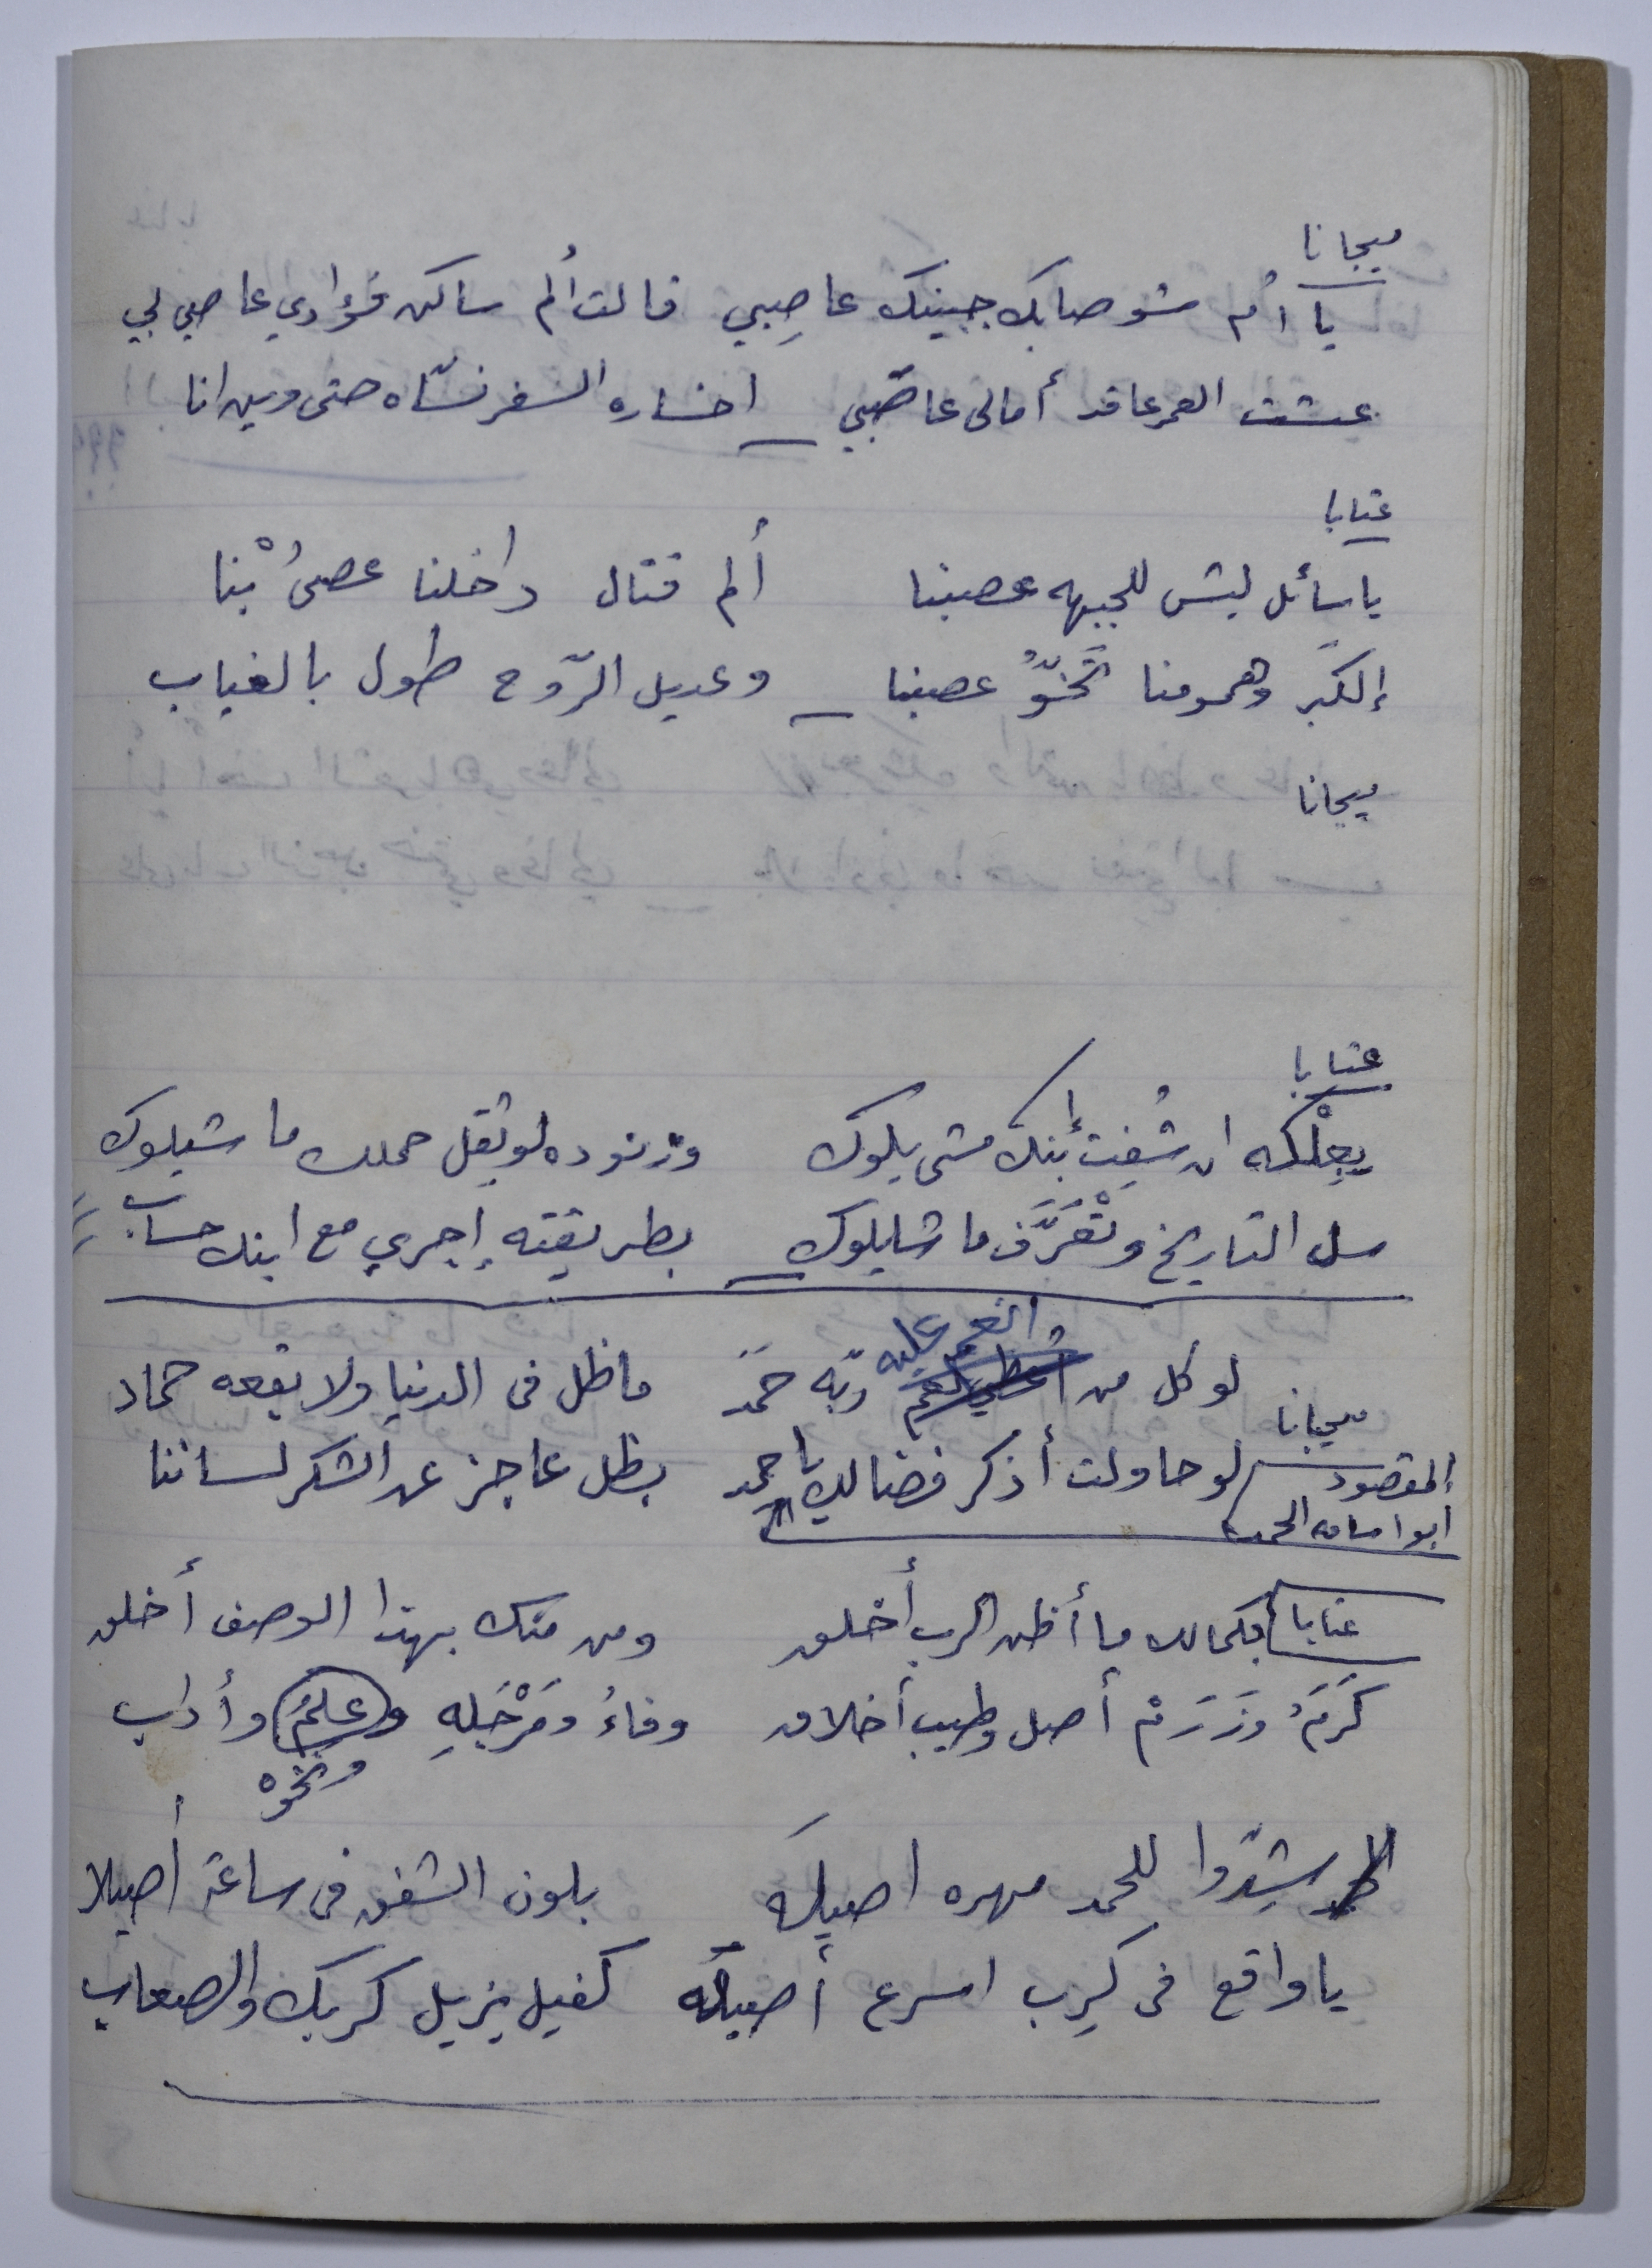 ميجانا
يا أم شو صابك جبينك عاصِبي قالت ألم ساكن فؤادي عاصي بي
عشت العمر عاقد أمالى عاصَبي اخساره السفر نسّاه حتى وين انا
عتابا
يا سائل ليش للجبهه عصبنا ألم قتال داخلنا عصىُ بْنا
إلكَبر وهمومنا تَخوُّ عصبنا وعديل الرّوح طول بالغياب
ميجانا
عتابا
يجلْكه ان شفِت إبنك مشى بلوك وزنوده لو ثقل حملك ما شيلوك
سل التاريخ وتْعَرَّف ما شايلوك بطريقته إجري مع ابنك حساب
لو كل من انعم عليه ربّه حمَدَ ماظل فى الدنيا ولا بقعه حماد
ميجانا
لو حاولت أذكر فضالك يا حمد بظل عاجز عن الشكر لساننا
المقصود
ابو امان الحمد
عتابا بكمالك ما أظن الرب أخلق ومن متك بهذا الوصف أخلق
كَرَمُ وزَرَمْ أصل وطيب أخلاق وفاءُ ومَرْجَلهِ وعلمُ وأداب
ونخوه
شِدّوا للحمد مهره اصيله بلون الشفق فى ساعة أصيلا
يا واقع فى كَرِب اسرع أصيله كفيل يزيل كربك والصعاب